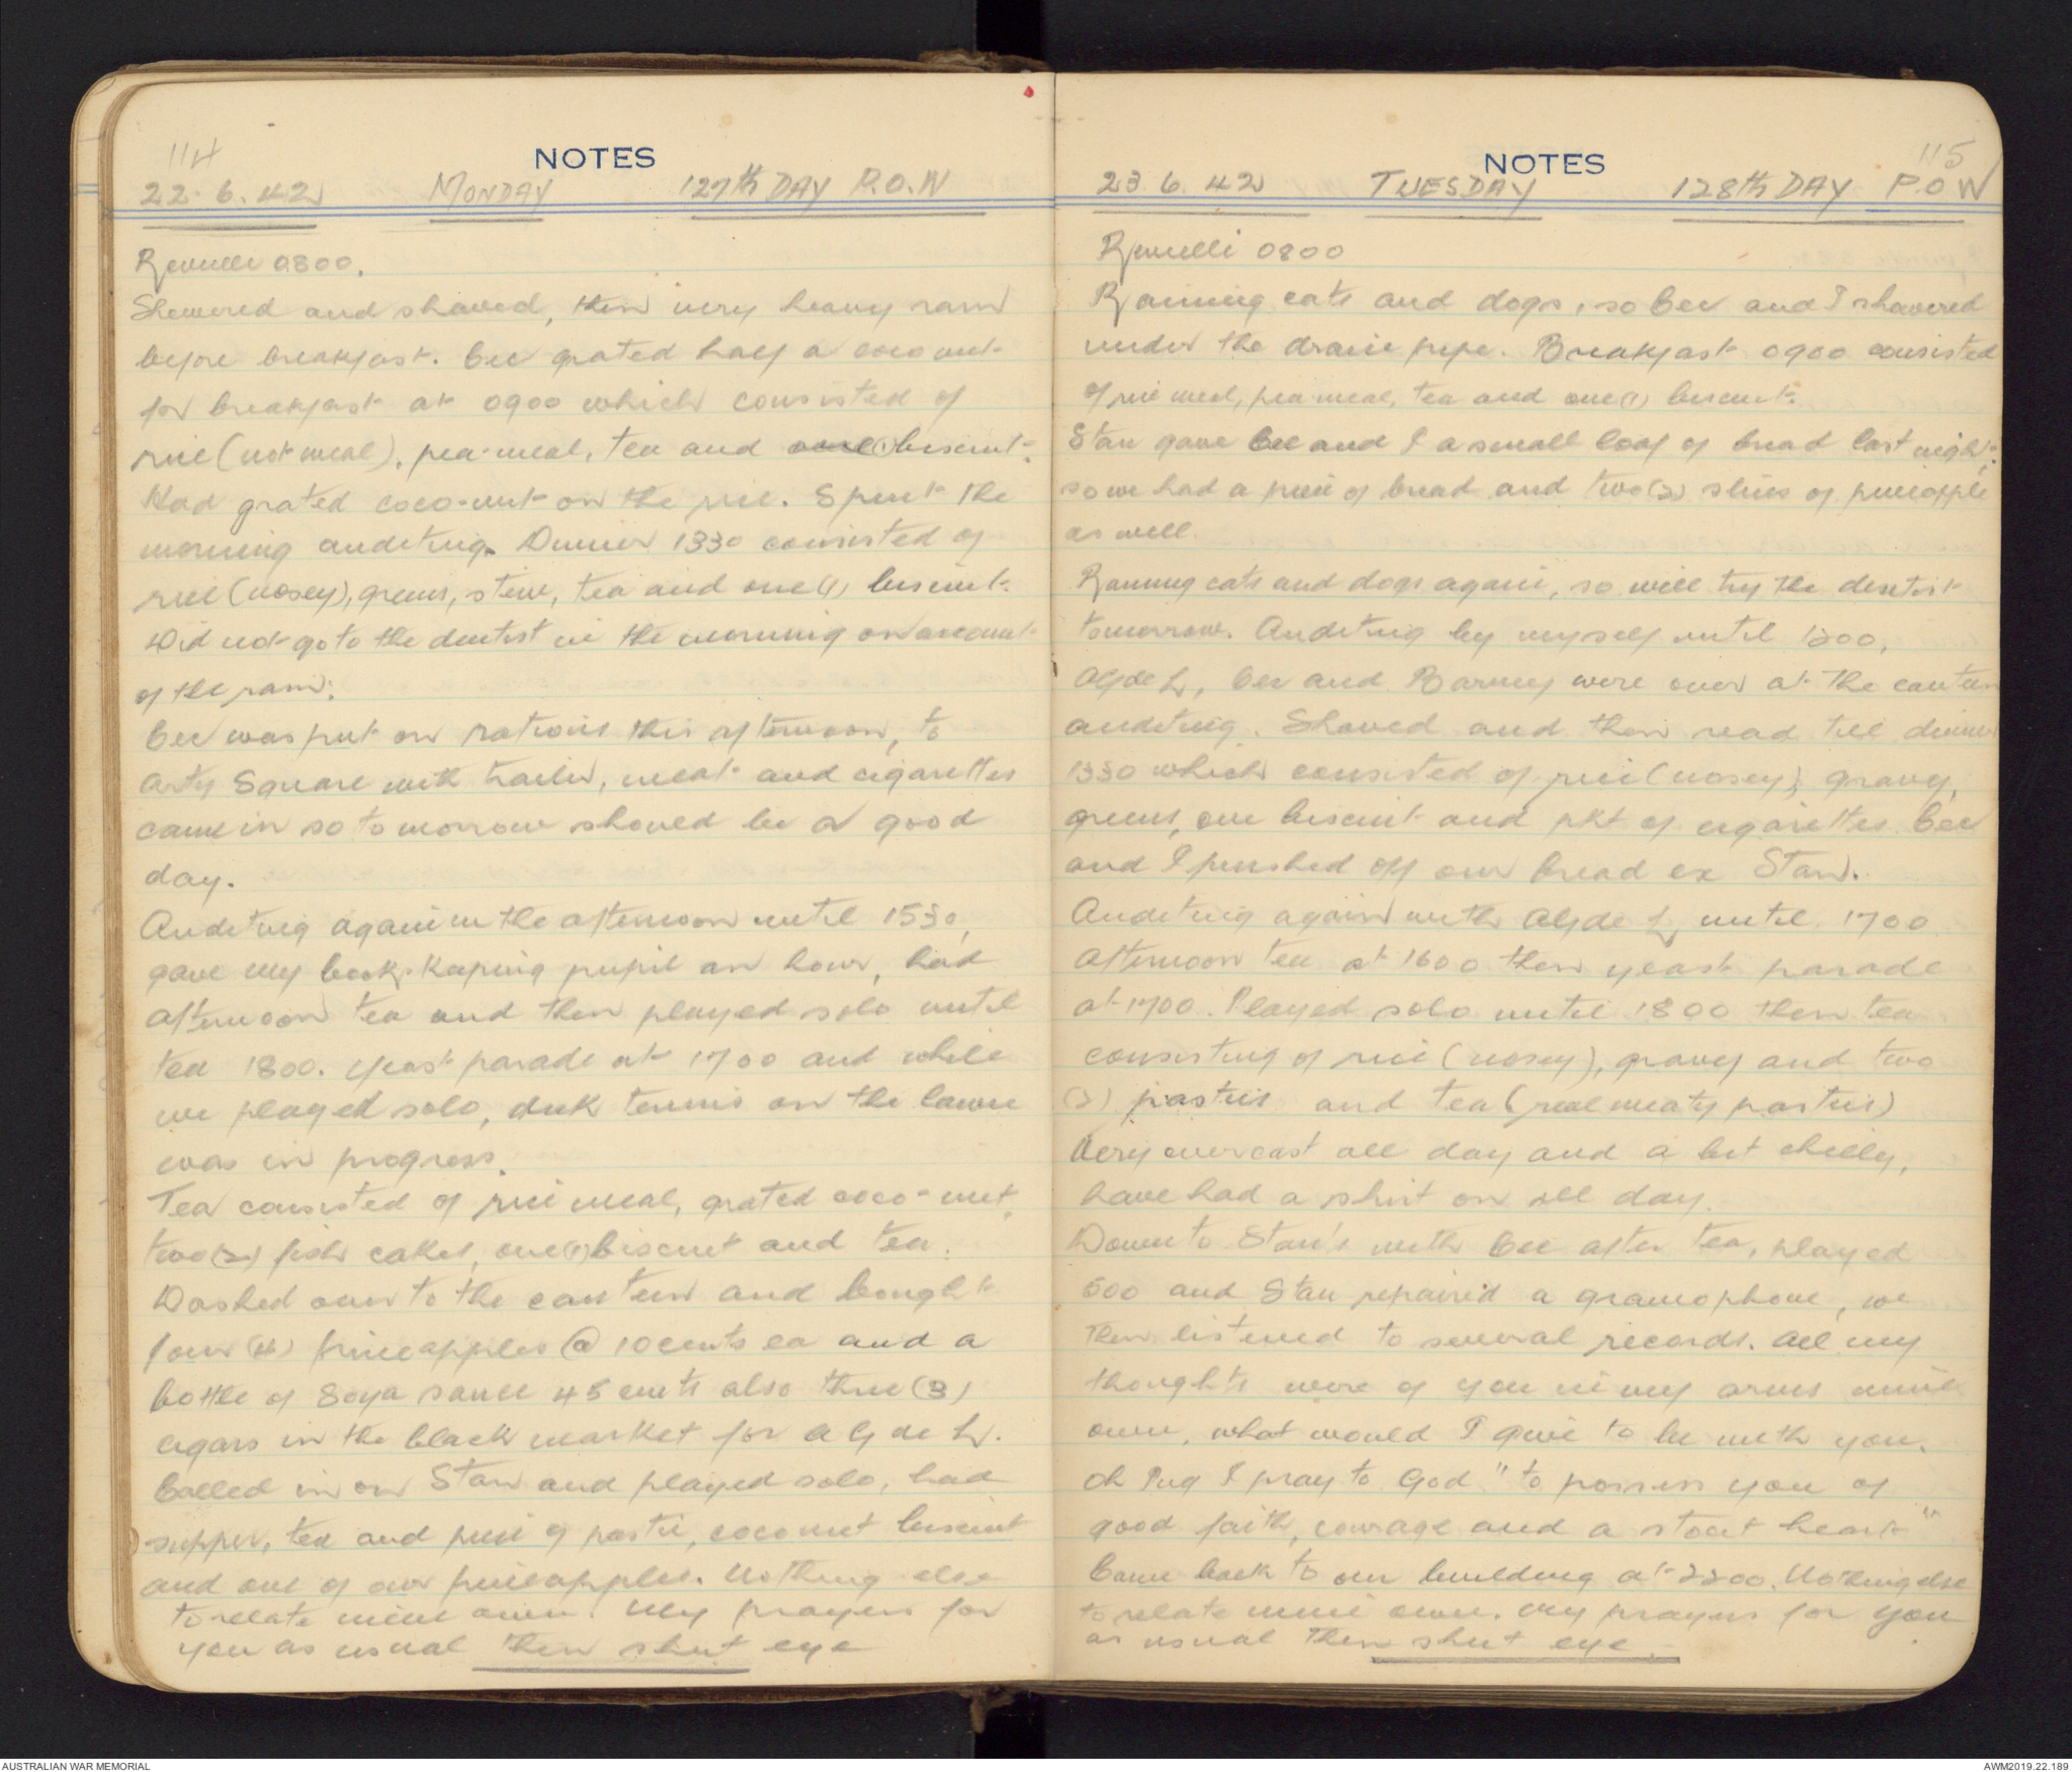 114
NOTES
22.6.42 MONDAY 127th DAY P.O.W
Reveille 0800.
Showered and shaved, then very heavy rain
before breakfast. Cec grated half a coco nut
for breakfast at 0900 which consisted of
rice (not meal), pea-meal, tea and one (1) biscuit.
Had grated coco-nut on the rice. Spent the
morning auditing. Dinner 1330 consisted of
rice (nosey), greens, stew, tea and one (1) biscuit.
Did not go to the dentist in the morning on account
of the rain.
Cec was put on rations this afternoon, to
Arty Square with trailer, meat and cigarettes
came in so to morrow should be a good
day.
Auditing again in the afternoon until 1530,
gave my book-keeping pupil an hour, had
afternoon tea and then played solo until
tea 1800. Yeast parade at 1700 and while
we played solo, deck tennis on the lawn
was in progress.
Tea consisted of rice meal, grated coco-nut,
two (2) fish cakes, one (1) biscuit and tea.
Dashed over to the canteen and bought
four (4) pineapples @ 10 cents ea and a
bottle of Soya sauce 45 cents also three (3)
cigars in the black market for Clyde L.
Called in on Stan and played solo, had
supper, tea and piece of pastie, coconut biscuit
and one of our pineapples. Nothing else
to relate mine own. My prayers for
you as usual then shut eye
NOTES
115
23.6.42 TUESDAY 128th DAY P.O.W
Reveille 0800
Raining cats and dogs, so Cec and I showered
under the drain pipe. Breakfast 0900 consisted
of rice meal, pea meal, tea and one (1) biscuit.
Stan gave Cec and I a small loaf of bread last night,
so we had a piece of bread and two (2) slices of pineapple
as well.
Raining cats and dogs again, so will try the dentist
tomorrow. Auditing by myself until 1200,
Clyde L, Cec and Barney were over at the canteen
auditing. Shaved and then read till dinner
1330 which consisted of rice (nosey), gravy,
greens, one biscuit and pkt of cigarettes. Cec
and I finished off our bread ex Stan.
Auditing again with Clyde L until 1700
afternoon tea at 1600 then yeast parade
at 1700. Played solo until 1800 then tea
consisting of rice (nosey), gravy and two
(2) pasties and tea (real meaty pasties)
Very overcast all day and a bit chilly,
have had a shirt on all day.
Down to Stan's with Cec after tea, played
500 and Stan repaired a gramophone, we
then listened to several records. All my
thoughts were of you in my arms mine
own, what would I give to be with you.
Oh Pug I pray to God "to possess you of
good faith, courage and a stout heart"
Came back to our building at 2200. Nothing else
to relate mine own. My prayers for you
as usual then shut eye.
AUSTRALIAN WAR MEMORIAL
AWM2019.22.189